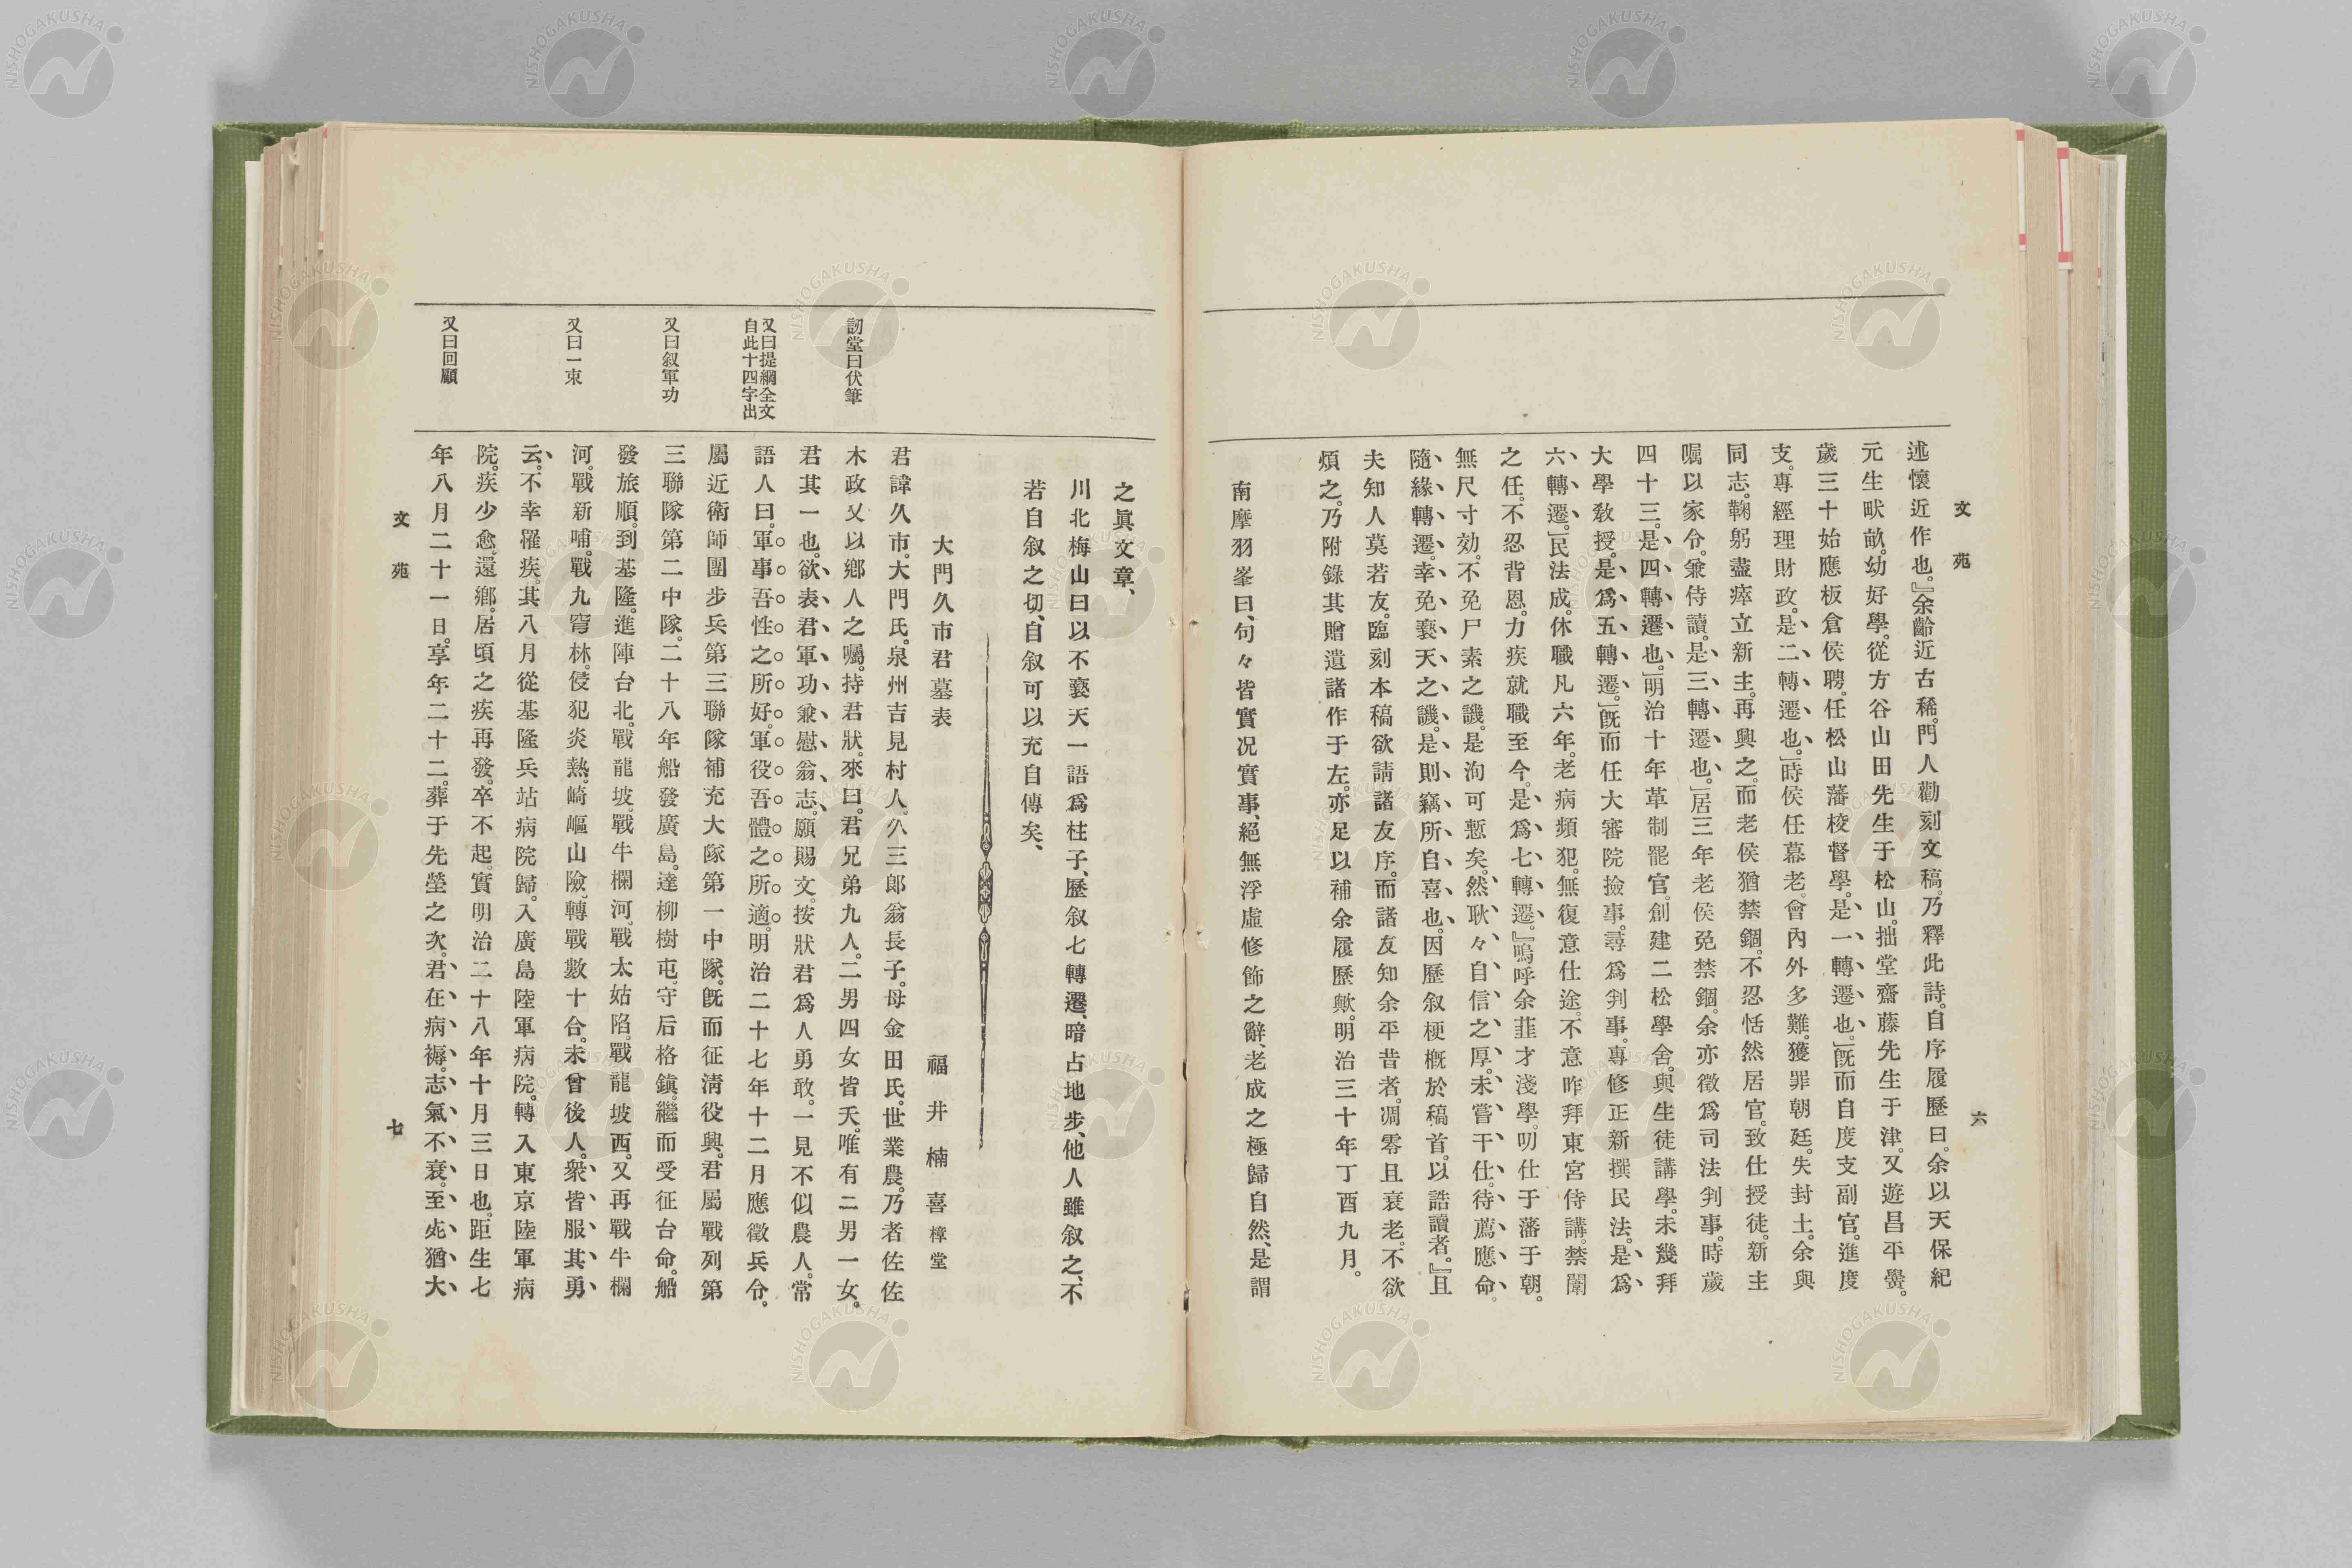 文苑
六
述懷近作也。』余齡近古稀。門人勸刻文稿。乃釋此詩。自序履歷曰。余以天保紀
元生畎畝。幼好學。從方谷山田先生于松山。拙堂齋藤先生于津。又遊昌平黌。
歲三十始應板倉侯聘。任松山藩校督學。是一轉遷也。」旣而自度支副官。進度
支。專經理財政。是二轉遷也。」時侯任幕老。會內外多難。獲罪朝廷。失封土。余與
同志。鞠躬盡瘁立新主。再興之。而老侯猶禁錮。不忍恬然居官。致仕授徒。新主
囑以家令。兼侍讀。是三轉遷也。」居三年老侯免禁錮。余亦徵爲司法判事。時歲
四十三。是四轉遷也。」明治十年革制罷官。創建二松學舍。與生徒講學。未幾拜
大學敎授。是爲五轉遷。」旣而任大審院撿事。尋爲判事。專修正新撰民法。是爲
六轉遷。」民法成。休職凡六年。老病頻犯。無復意仕途。不意昨拜東宮侍講。禁闈
之任。不忍背恩。力疾就職至今。是爲七轉遷。』嗚呼余韮才淺學。叨仕于藩于朝。
無尺寸効。不免尸素之譏。是洵可慙矣。然耿々自信之厚。未嘗干仕。待薦應命。
隨緣轉遷。幸免褻天之譏。是則竊所自喜也。因歷叙梗槪於稿首。以誥讀者。』且
夫知人莫若友。臨刻本稿欲請諸友序。而諸友知余平昔者。凋零且衰老。不欲
煩之。乃附錄其贈遺諸作于左。亦足以補余履歷歟。明治三十年丁酉九月。
南摩羽峯曰、句々皆實況實事、絕無浮虛修飾之辭、老成之極歸自然、是謂
之眞文章、
川北梅山曰以不褻天一語爲柱子、歷叙七轉遷、暗占地步、他人雖叙之、不
若自叙之切、自叙可以充自傳矣、
大門久市君墓表
福井楠喜樟堂
訒堂曰伏筆
又曰提綱全文
自此十四字出
又曰叙軍功
又曰一束
又曰回顧
君諱久市。大門氏。泉州吉見村人。久三郞翁長子。母金田氏。世業農。乃者佐佐
木政又以鄕人之囑。持君狀。來曰。君兄弟九人。二男四女皆夭。唯有二男一女。
君其一也。欲表君軍功、兼慰翁志。願賜文。按狀君爲人勇敢。一見不似農人。常
語人曰。軍事吾性之所好。軍役吾體之所適。明治二十七年十二月應徵兵令。
屬近衛師團步兵第三聯隊補充大隊第一中隊。旣而征淸役興。君屬戰列第
三聯隊第二中隊。二十八年船發廣島。達柳樹屯。守后格鎭。繼而受征台命。船
發旅順。到基隆。進陣台北。戰龍坡。戰牛欄河。戰太姑陷。戰龍坡西。又再戰牛欄
河。戰新哺。戰九穹林。侵犯炎熱。崎嶇山險、轉戰數十合。未曾後人。衆皆服其勇
云。不幸罹疾。其八月從基隆兵站病院歸。入廣島陸軍病院。轉入東京陸軍病
院。疾少愈。還鄕。居頃之疾再發。卒不起。實明治二十八年十月三日也。距生七
年八月二十一日。享年二十二。葬于先塋之次。君在病褥。志氣不衰。至死猶大
文苑
七